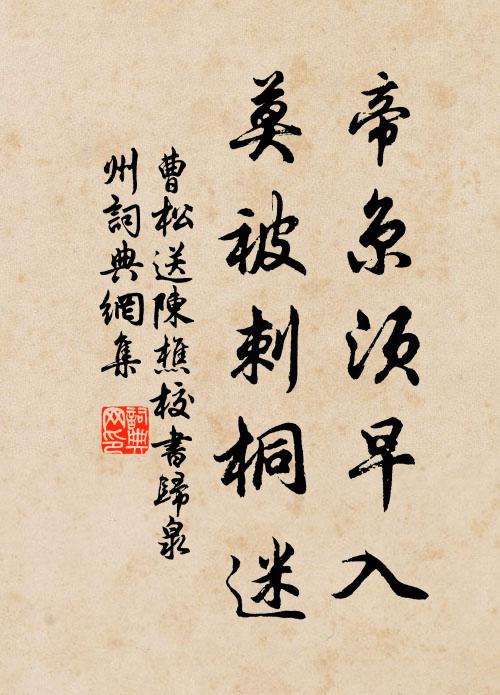 帝京须早入
莫被刺桐迷
曹松送陳樵校書歸泉
州詞典網集
詞典网印